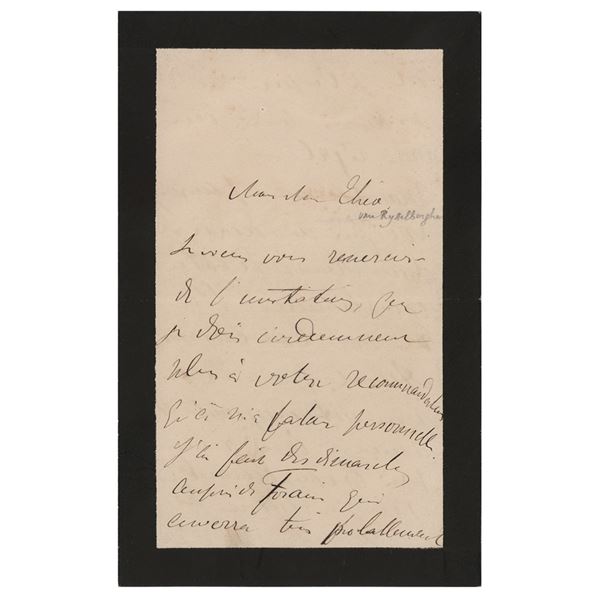 Mon bon Théo
van Rysselberghe
Je viens vous remercier
de l'invitation, que
je dois évidemment
plus à votre recommandation
qu'à ma valeur personnelle.
J'ai fait des démarches
auprès de Forain qui
enverra très probablement